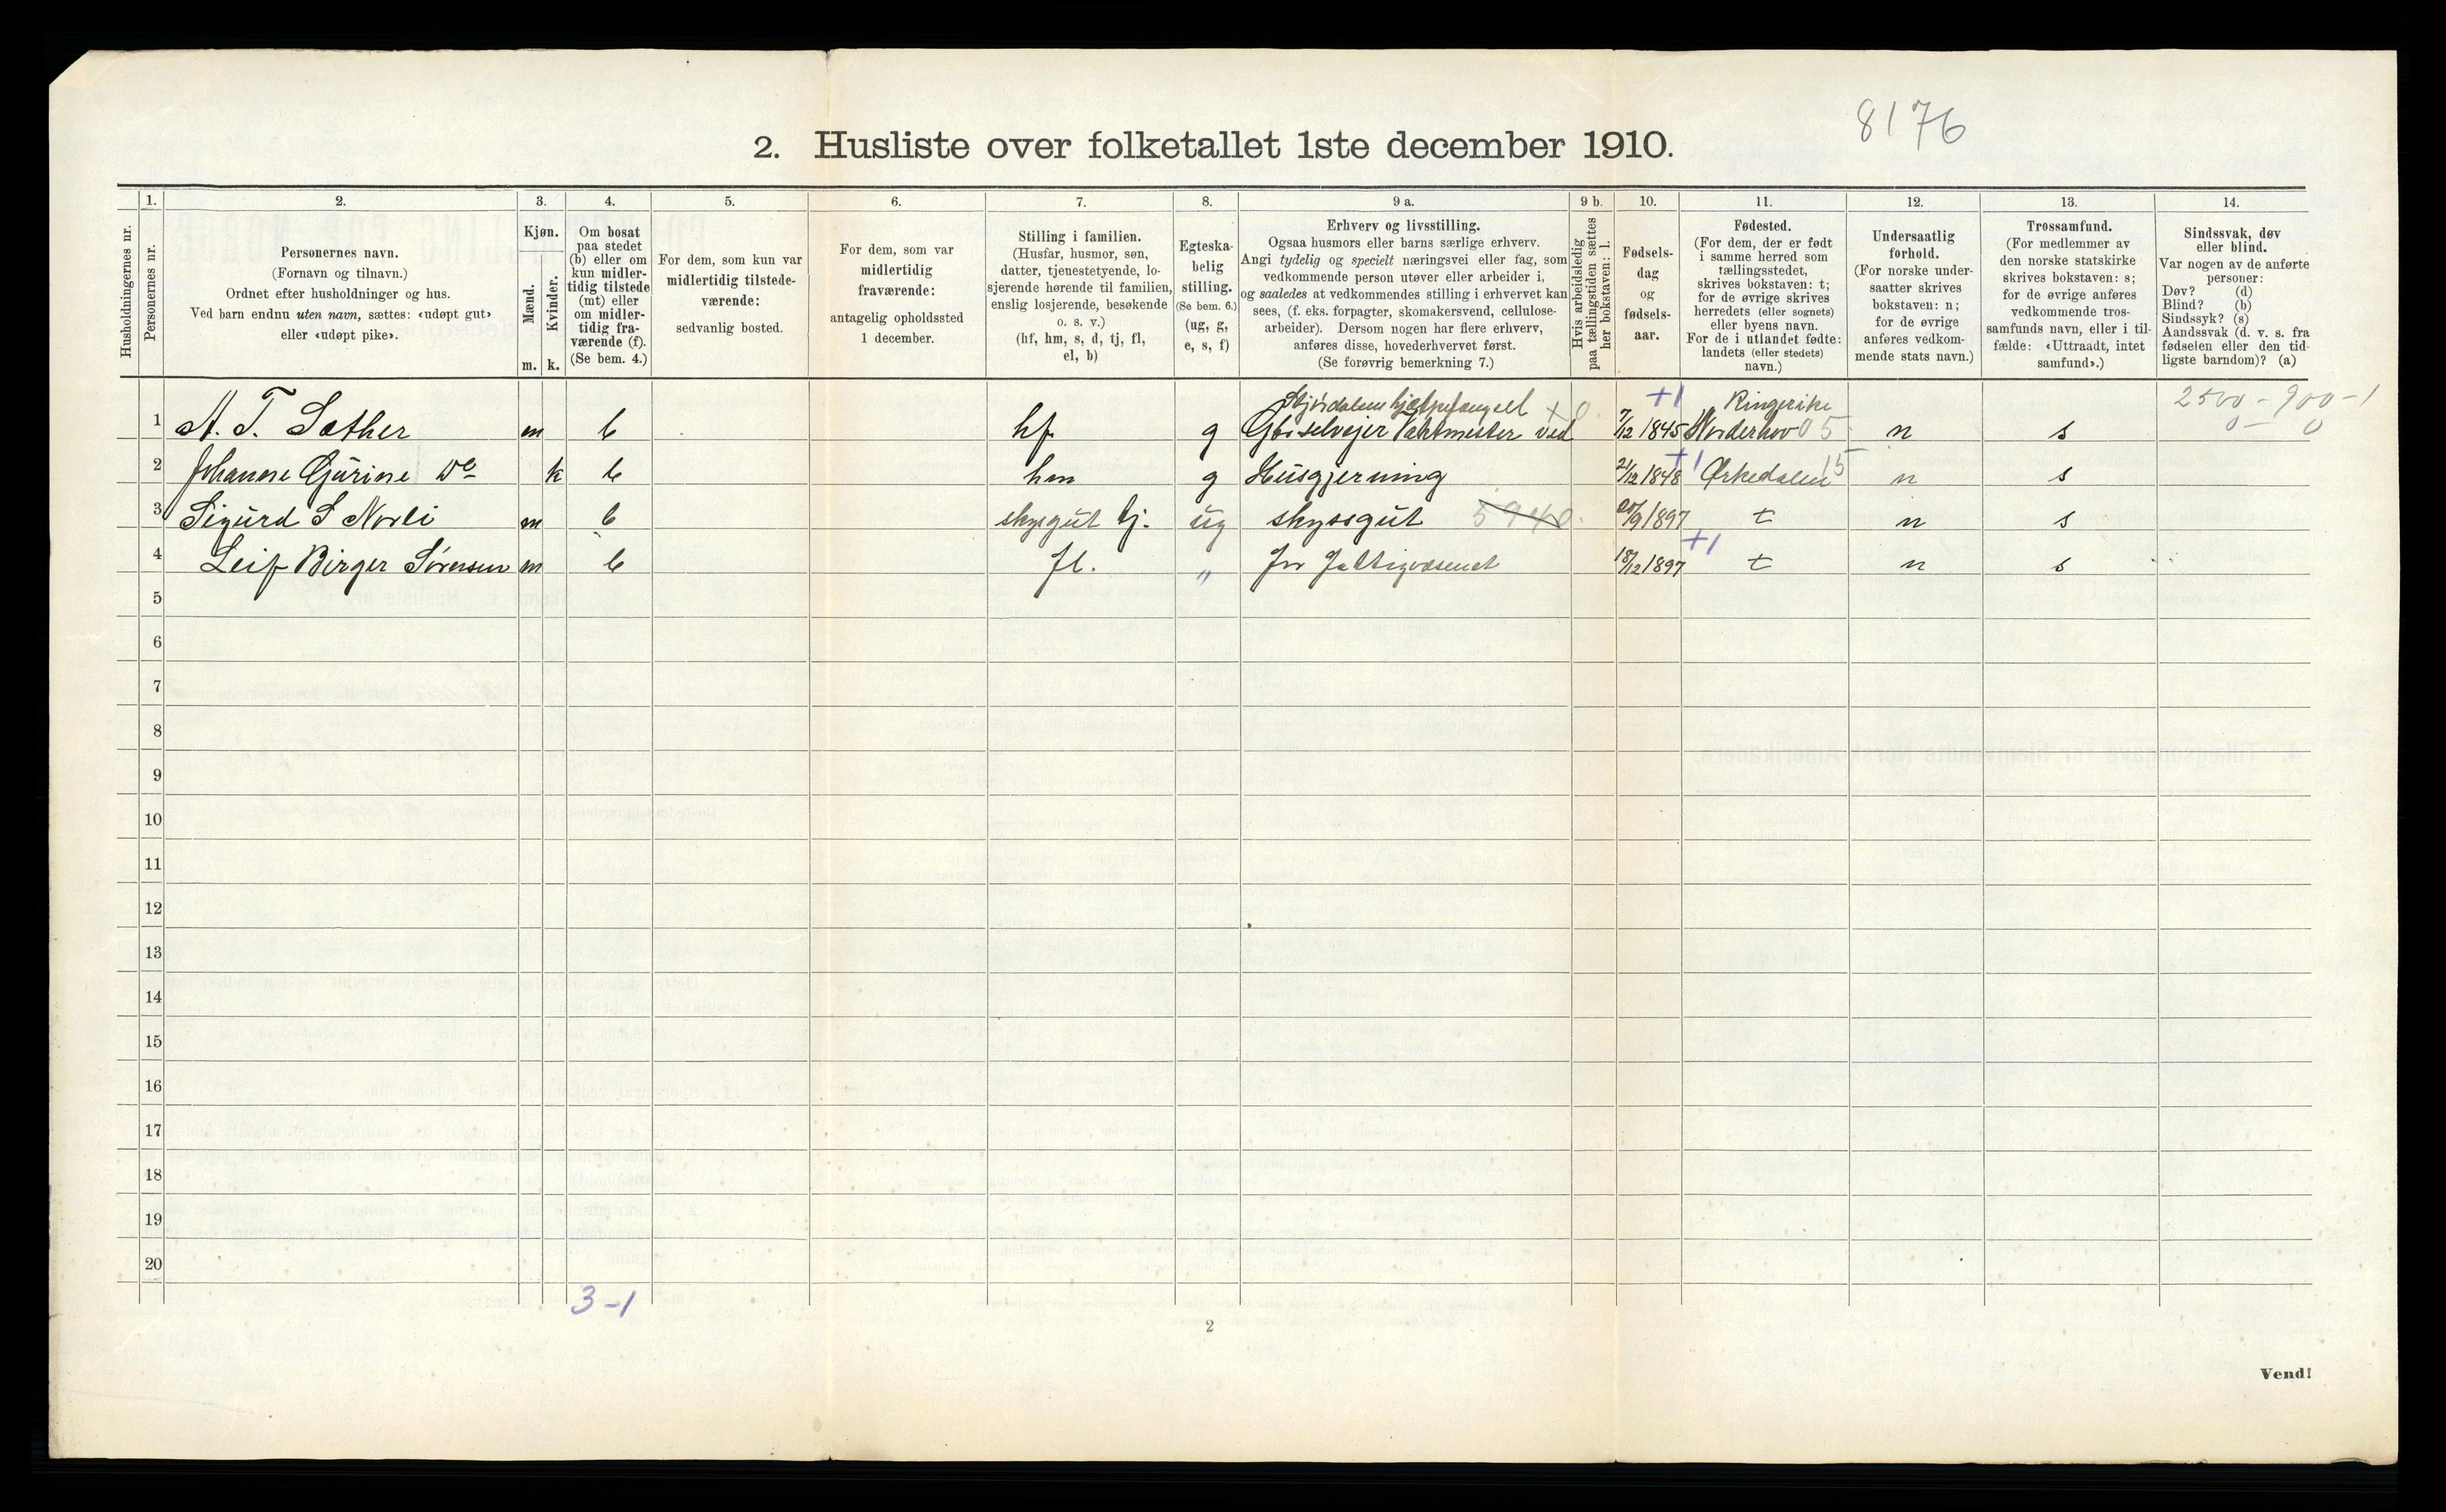 8176
2. Husliste over folketallet 1ste december 1910.
Husholdningernes nr.
1.
Personernes nr.
2.
Personernes navn.
(Fornavn og tilnavn.)
Ordnet efter husholdninger og hus.
Ved barn endnu uten navn, sættes: «udøpt gut»
eller «udøpt pike».
3.
Kjøn.
Mænd.
Kvinder.
m. k.
4.
Om bosat
paa stedet
(b) eller om
kun midler-
tidig tilstede
(mt) eller
om midler-
tidig fra-
værende (f).
(Se bem. 4.)
5.
For dem, som kun var
midlertidig tilstede-
værende:
sedvanlig bosted.
6.
For dem, som var
midlertidig
fraværende:
antagelig opholdssted
1 december.
7.
Stilling i familien.
(Husfar, husmor, søn,
datter, tjenestetyende, lo-
sjerende hørende til familien,
enslig losjerende, besøkende
o. s. v.)
(hf, hm, s, d, tj, fl,
el, b)
8.
Egteska-
belig
stilling.
(Se bem. 6.)
(ug, g,
e, s, f)
9 a.
Erhverv og livsstilling.
Ogsaa husmors eller barns særlige erhverv.
Angi tydelig og specielt næringsvei eller fag, som
vedkommende person utøver eller arbeider i,
og saaledes at vedkommendes stilling i erhvervet kan
sees, (f. eks. forpagter, skomakersvend, cellulose-
arbeider). Dersom nogen har flere erhverv,
anføres disse, hovederhvervet først.
(Se forøvrig bemerkning 7.)
9 b.
Hvis arbeidsledig
paa tællingstiden sættes
her bokstaven: l.
10.
Fødsels-
dag
og
fødsels-
aar.
11.
Fødested.
(For dem, der er født
i samme herred som
tællingsstedet,
skrives bokstaven: t;
for de øvrige skrives
herredets (eller sognets)
eller byens navn.
For de i utlandet fødte:
landets (eller stedets)
navn.)
12.
Undersaatlig
forhold.
(For norske under-
saatter skrives
bokstaven: n;
for de øvrige
anføres vedkom-
mende stats navn.)
13.
Trossamfund.
(For medlemmer av
den norske statskirke
skrives bokstaven: s;
for de øvrige anføres
vedkommende tros-
samfunds navn, eller i til-
fælde: «Uttraadt, intet
samfund».)
14.
Sindssvak, døv
eller blind.
Var nogen av de anførte
personer:
Døv? (d)
Blind? (b)
Sindssyk? (s)
Aandssvak (d. v. s. fra
fødselen eller den tid-
ligste barndom)? (a)
Stjørdalens hjælpefængsel x 0 +1 Ringerike 2500 - 900 - 1
1 A. T. Sæther m b hf g Gbr selvejer Vaktmester ved 7/12 1845 Norderhov 05 n s 0 - 0
2 Johanne Gurine do k b hm g Husgjerning 21/12 1848 +1 Ørkedalen 15 n s
3 Sigurd S Norli m b skysgut tj. ug skyssgut 5940 20/9 1897 t n s
4 Leif Birger Sørensen m b fl. " For Fattigvæsenet 18/12 1897 +1 t n s
5
6
7
8
9
10
11
12
13
14
15
16
17
18
19
20
3-1
2
Vend!